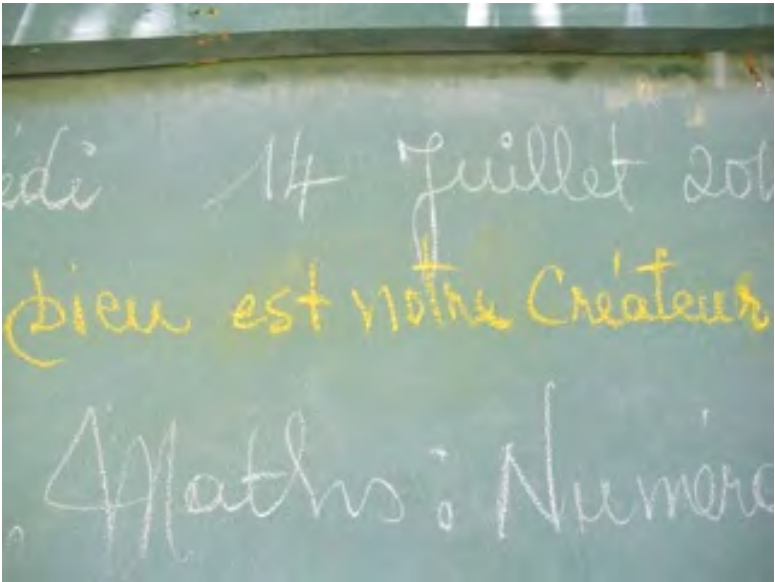 édi 14 Juillet 20
Dieu est notre Créateur
Maths : Numéra